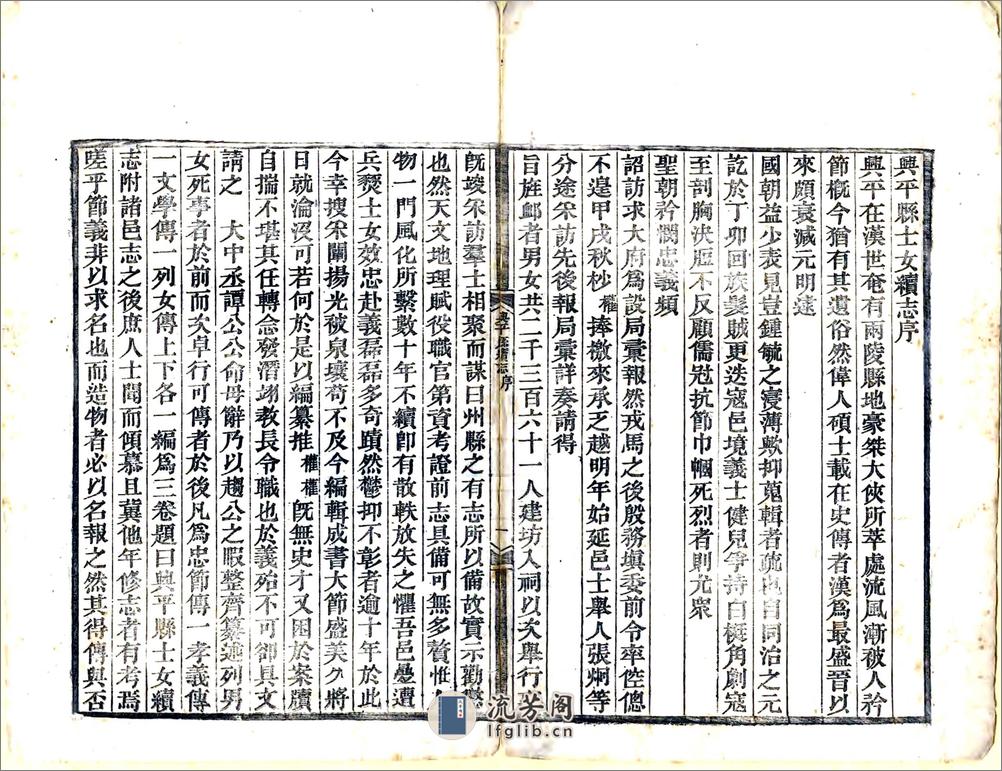 興平縣士女續志序
興平在漢世奄有兩陵縣地豪桀大俠所萃處流風漸被人矜
節槪今猶有其遺俗然偉人碩士載在史傳者漢爲最盛晉以
來頗衰減元明迄
國朝益少表見豈鍾毓之寖薄歟抑蒐輯者疏也自同治之元
訖於丁卯回族髮賊更迭寇邑境義士健兒爭持白梃角劇寇
至剖胸決脰不反顧儒冠抗節巾幗死烈者則尤衆
聖朝矜憫忠義頻
詔訪求大府爲設局彙報然戎馬之後殷務塡委前令率倥傯
不遑甲戌秋杪權捧檄來承乏越明年始延邑士舉人張炯等
分途采訪先後報局彙詳奏請得
旨旌䘏者男女共二千三百六十一人建坊入祠以次舉行
旣竣采訪羣士相聚而謀曰州縣之有志所以備故實示勸懲
也然天文地理賦役職官第資考證前志具備可無多贅惟
物一門風化所繫數十年不續卽有散軼放失之懼吾邑疊遭
兵燹士女效忠赴義磊磊多奇蹟然鬱抑不彰者逾十年於此
今幸搜采闡揚光被泉壤苟不及今編輯成書大節盛美久將
日就淪沒可若何於是以編纂推權權旣無史才又困於案牘
自揣不堪其任轉念發潛翊教長令職也於義殆不可卻具文
請之 大中丞譚公公俞毋辭乃以趨公之暇整齊纂述列男
女死事者於前而次卓行可傳者於後凡爲忠節傳一孝義傳
一文學傳一列女傳上下各一編爲三卷題曰興平縣士女續
志附諸邑志之後庶人士閱而傾慕且冀他年修志者有考焉
嗟乎節義非以求名也而造物者必以名報之然其得傳與否
序
一
流芳阁
lfglib.cn